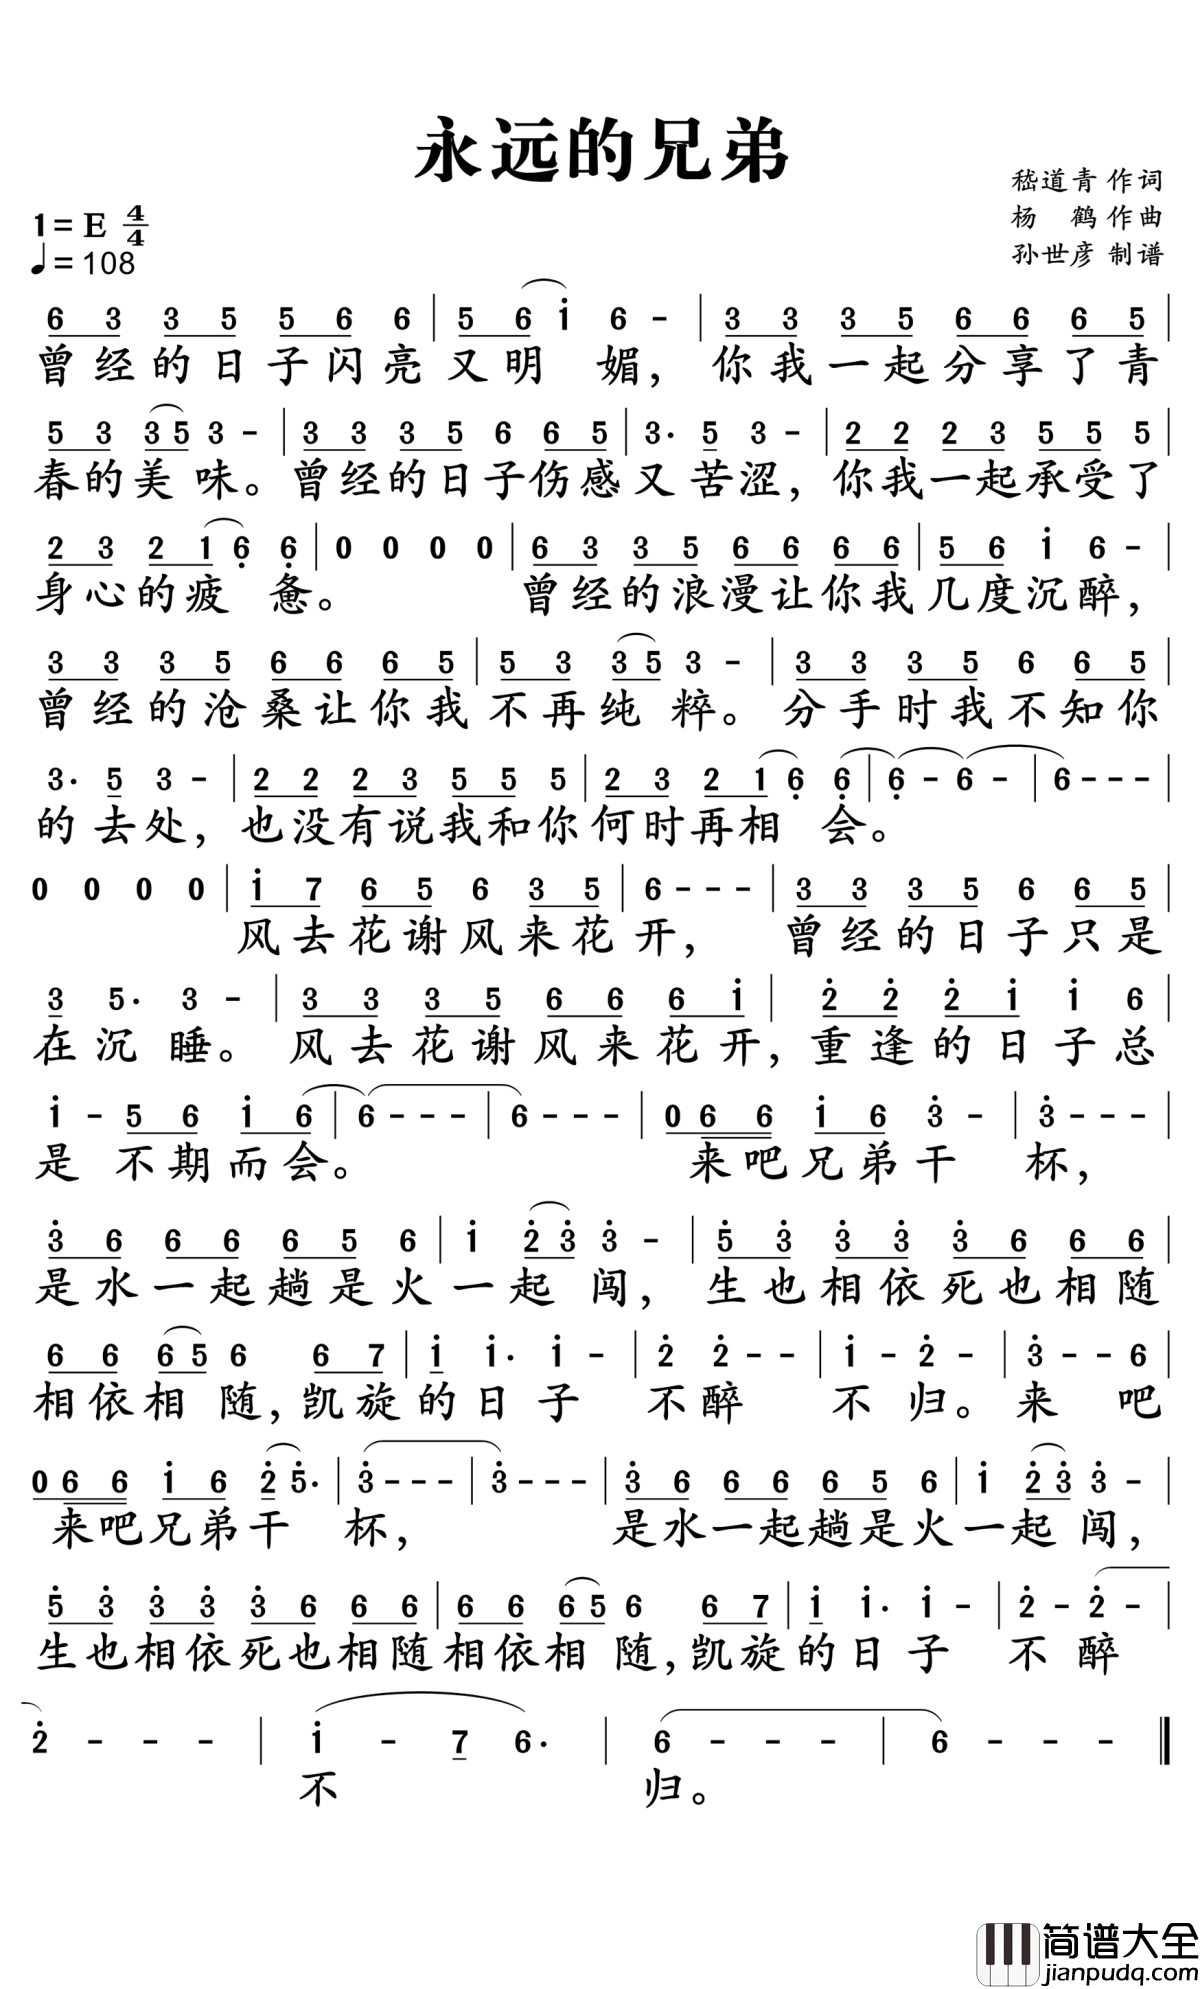 永远的兄弟
嵇道青 作词
1=E 4/4
杨 鹤 作曲
♩=108
孙世彦 制谱
6 3 3 5 5 6 6 | 5 6 i 6 - | 3 3 3 5 6 6 6 5 |
曾经的日子闪亮又明 媚，你我一起分享了青
5 3 3 5 3 - | 3 3 3 5 6 6 5 | 3· 5 3 - | 2 2 2 3 5 5 5 |
春的美 味。曾经的日子伤感又 苦涩，你我一起承受了
2 3 2 1 6̣ 6̣ | 0 0 0 0 | 6 3 3 5 6 6 6 6 | 5 6 i 6 - |
身心的疲 惫。 曾经的浪漫让你我几度沉醉，
3 3 3 5 6 6 6 5 | 5 3 3 5 3 - | 3 3 3 5 6 6 5 |
曾经的沧桑让你我不再纯 粹。分手时我不知你
3· 5 3 - | 2 2 2 3 5 5 5 | 2 3 2 1 6̣ 6̣ | 6̣ - 6 - | 6 - - - |
的 去处，也没有说我和你何时再相 会。
0 0 0 0 | i 7 6 5 6 3 5 | 6 - - - | 3 3 3 5 6 6 5 |
风去花谢风来花 开， 曾经的日子只是
3 5· 3 - | 3 3 3 5 6 6 6 i | 2̇ 2̇ 2̇ i i 6 |
在沉 睡。风去花谢风来花开，重逢的日子总
i - 5 6 i 6 | 6 - - - | 6 - - - | 0 6 6 i 6 3̇ - | 3̇ - - - |
是 不期而会。 来吧兄弟干 杯，
3̇ 6 6 6 6 5 6 | i 2̇ 3̇ 3̇ - | 5̇ 3̇ 3̇ 3̇ 3̇ 6 6 6 |
是水一起趟是火一起 闯，生也相依死也相随
6 6 6 5 6 6 7 | i i· i - | 2̇ 2̇ - - | i - 2̇ - | 3̇ - - 6 |
相依相 随，凯旋的日子 不醉 不归。来 吧
0 6 6 i 6 2̇ 5̇· | 3̇ - - - | 3̇ - - - | 3̇ 6 6 6 6 5 6 | i 2̇ 3̇ 3̇ - |
来吧兄弟干 杯， 是水一起趟是火一起 闯，
5̇ 3̇ 3̇ 3̇ 3̇ 6 6 6 | 6 6 6 5 6 6 7 | i i· i - | 2̇ - 2̇ - |
生也相依死也相随相依相 随，凯旋的日子 不 醉
2̇ - - - | i - 7 6· | 6 - - - | 6 - - - ‖
不 归。
简谱大全
jianpudq.com